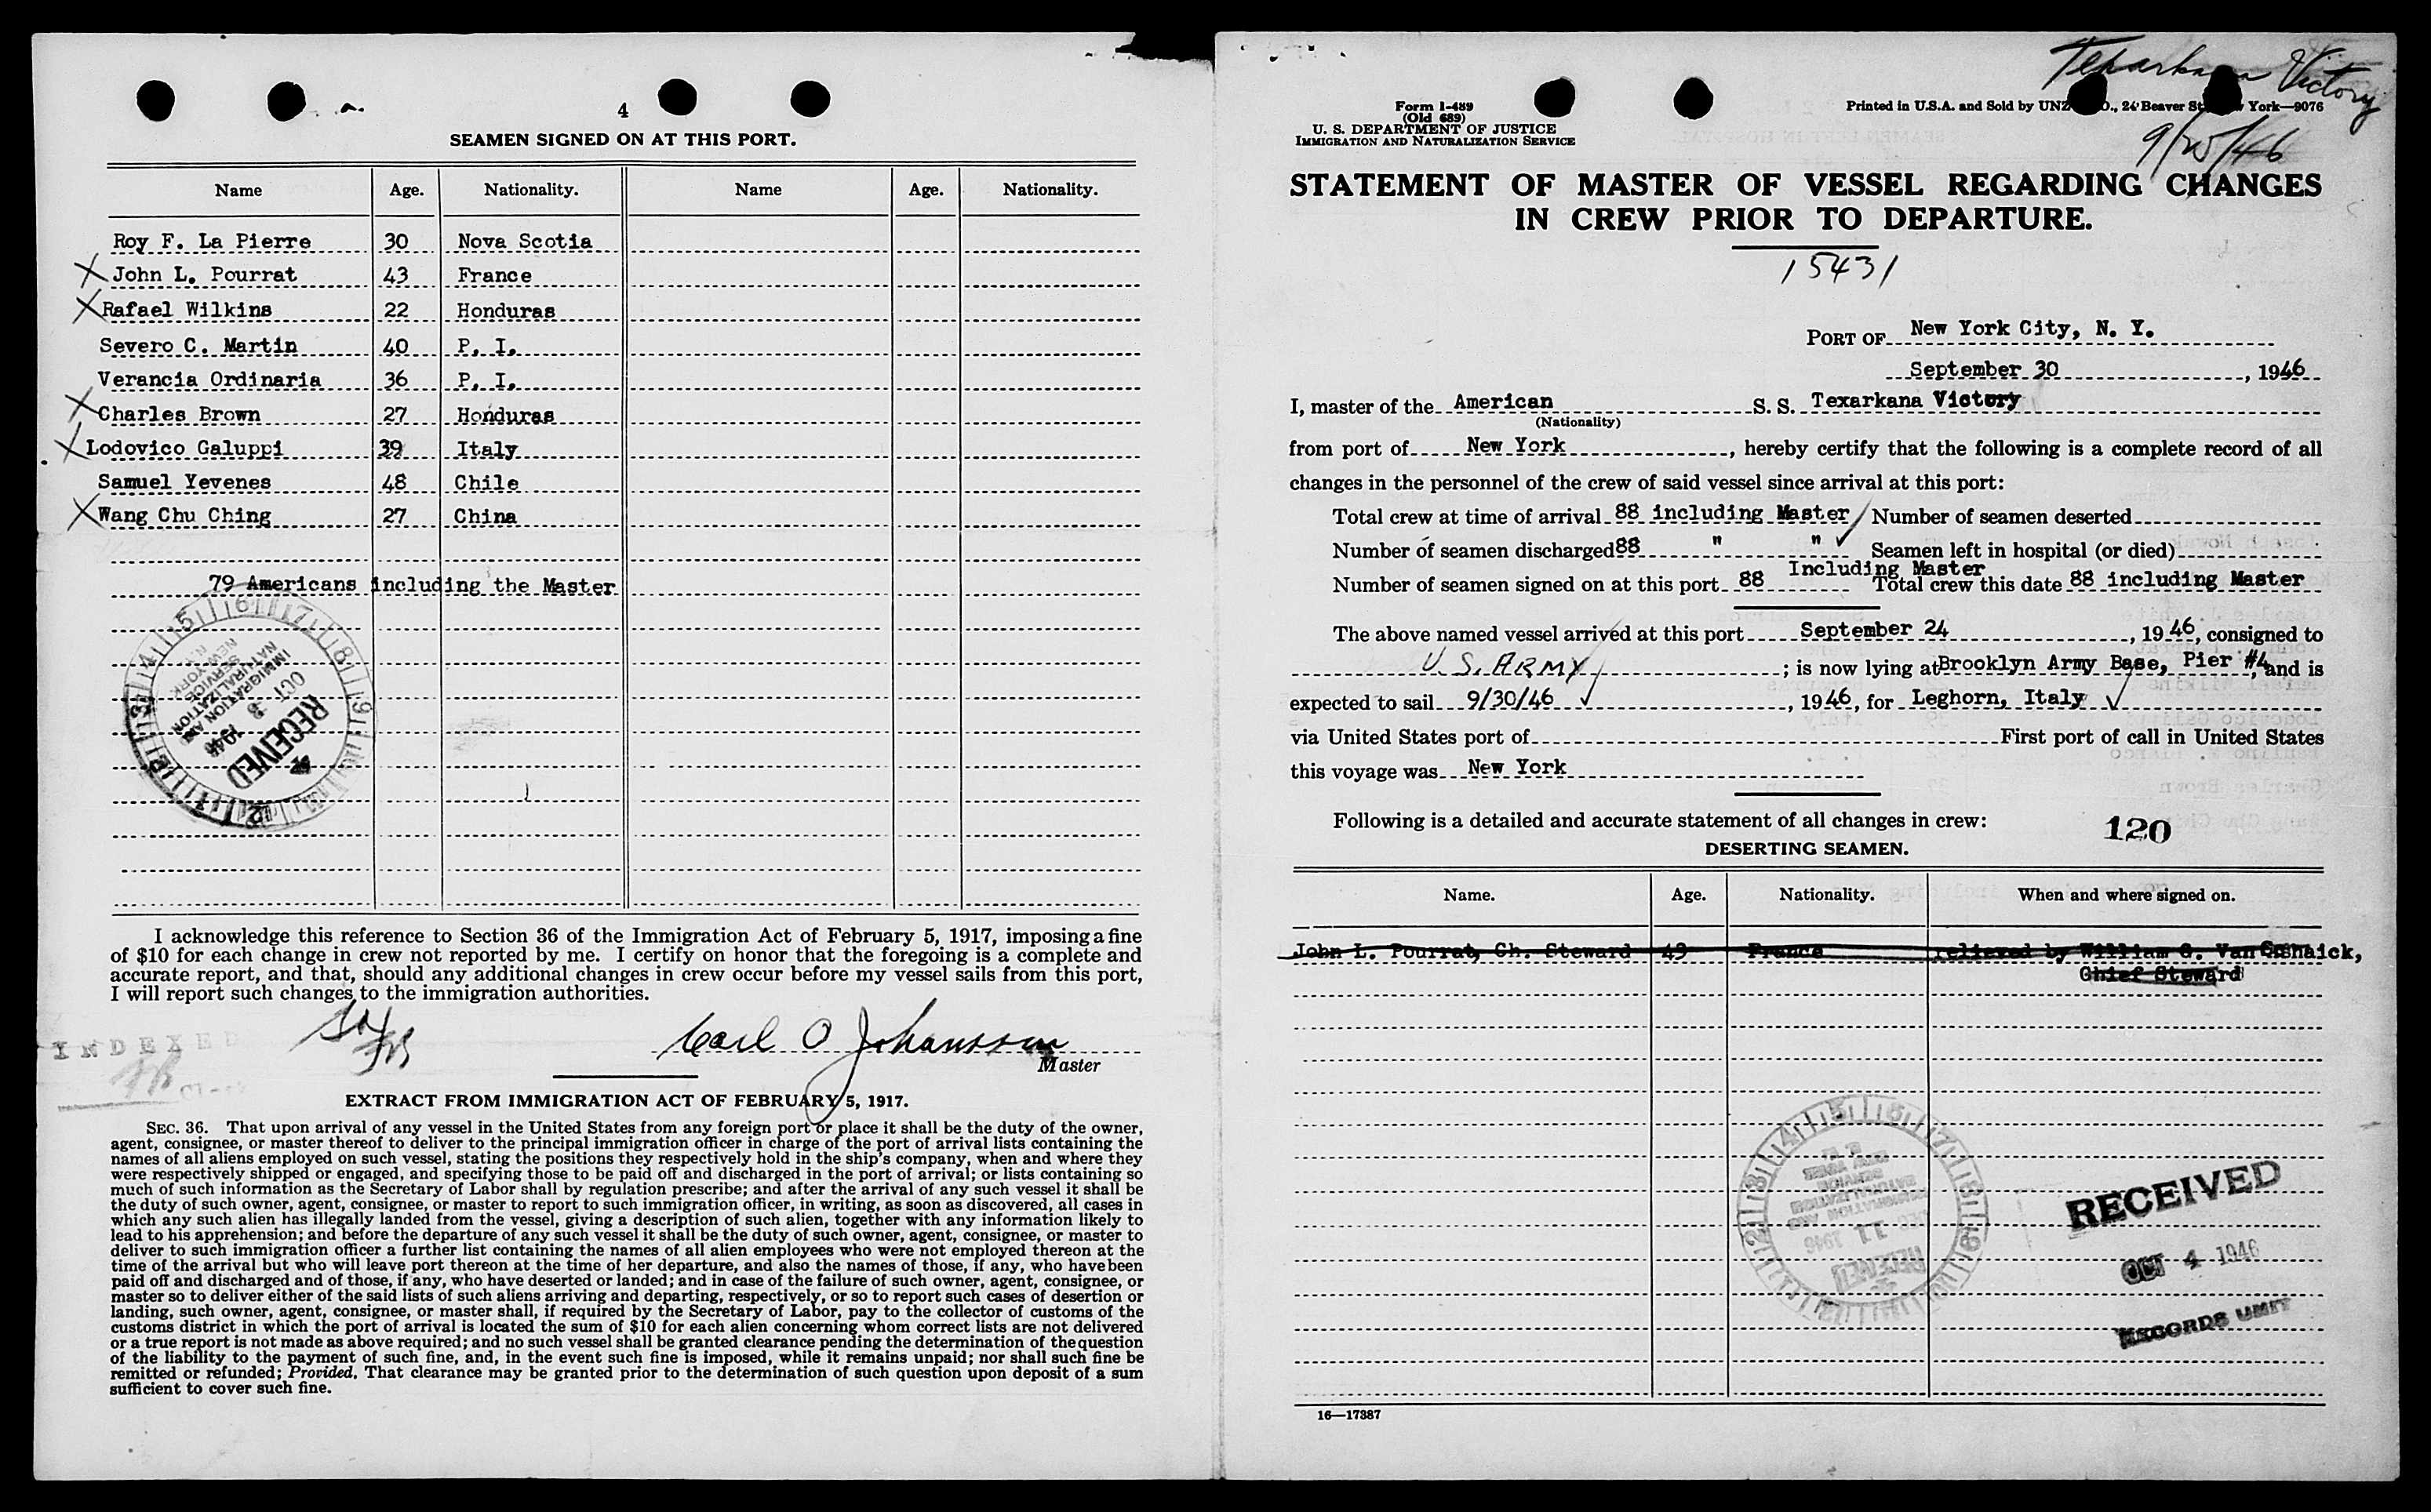 4
SEAMEN SIGNED ON AT THIS PORT.
Name Age. Nationality. Name Age. Nationality.
Roy F. La Pierre 30 Nova Scotia
X John L. Pourrat 43 France
X Rafael Wilkins 22 Honduras
Severo C. Martin 40 P. I.
Verancia Ordinaria 36 P. I.
X Charles Brown 27 Honduras
X Lodovico Galuppi 39 Italy
Samuel Yevenes 48 Chile
X Wang Chu Ching 27 China
79 Americans including the Master
RECEIVED
OCT 3 1946
IMMIGRATION AND
NATURALIZATION
SERVICE
NEW YORK
N.Y.
I acknowledge this reference to Section 36 of the Immigration Act of February 5, 1917, imposing a fine
of $10 for each change in crew not reported by me. I certify on honor that the foregoing is a complete and
accurate report, and that, should any additional changes in crew occur before my vessel sails from this port,
I will report such changes to the immigration authorities.
INDEXED
Carl O Johansson
Master
EXTRACT FROM IMMIGRATION ACT OF FEBRUARY 5, 1917.
SEC. 36. That upon arrival of any vessel in the United States from any foreign port or place it shall be the duty of the owner,
agent, consignee, or master thereof to deliver to the principal immigration officer in charge of the port of arrival lists containing the
names of all aliens employed on such vessel, stating the positions they respectively hold in the ship's company, when and where they
were respectively shipped or engaged, and specifying those to be paid off and discharged in the port of arrival; or lists containing so
much of such information as the Secretary of Labor shall by regulation prescribe; and after the arrival of any such vessel it shall be
the duty of such owner, agent, consignee, or master to report to such immigration officer, in writing, as soon as discovered, all cases in
which any such alien has illegally landed from the vessel, giving a description of such alien, together with any information likely to
lead to his apprehension; and before the departure of any such vessel it shall be the duty of such owner, agent, consignee, or master to
deliver to such immigration officer a further list containing the names of all alien employees who were not employed thereon at the
time of the arrival but who will leave port thereon at the time of her departure, and also the names of those, if any, who have been
paid off and discharged and of those, if any, who have deserted or landed; and in case of the failure of such owner, agent, consignee, or
master so to deliver either of the said lists of such aliens arriving and departing, respectively, or so to report such cases of desertion or
landing, such owner, agent, consignee, or master shall, if required by the Secretary of Labor, pay to the collector of customs of the
customs district in which the port of arrival is located the sum of $10 for each alien concerning whom correct lists are not delivered
or a true report is not made as above required; and no such vessel shall be granted clearance pending the determination of the question
of the liability to the payment of such fine, and, in the event such fine is imposed, while it remains unpaid; nor shall such fine be
remitted or refunded; Provided, That clearance may be granted prior to the determination of such question upon deposit of a sum
sufficient to cover such fine.
Texarkana Victory
Form I-489
(Old 689)
U. S. DEPARTMENT OF JUSTICE
IMMIGRATION AND NATURALIZATION SERVICE
Printed in U.S.A. and Sold by UNZ O., 24 Beaver St York—9076
STATEMENT OF MASTER OF VESSEL REGARDING CHANGES
IN CREW PRIOR TO DEPARTURE.
15431
PORT OF New York City, N. Y.
September 30, 1946
I, master of the American S. S. Texarkana Victory
(Nationality)
from port of New York, hereby certify that the following is a complete record of all
changes in the personnel of the crew of said vessel since arrival at this port:
Total crew at time of arrival 88 including Master Number of seamen deserted
Number of seamen discharged 88 " " Seamen left in hospital (or died)
Including Master
Number of seamen signed on at this port 88 Total crew this date 88 including Master
The above named vessel arrived at this port September 24, 1946, consigned to
U.S. ARMY; is now lying at Brooklyn Army Base, Pier #4, and is
expected to sail 9/30/46, 1946, for Leghorn, Italy
via United States port of First port of call in United States
this voyage was New York
Following is a detailed and accurate statement of all changes in crew:
120
DESERTING SEAMEN.
Name. Age. Nationality. When and where signed on.
John L. Pourrat, Ch. Steward 43 France relieved by William G. Van
Chief Steward
RECEIVED
11 1946
RECEIVED
OCT 4 1946
RECORDS UNIT
16—17387